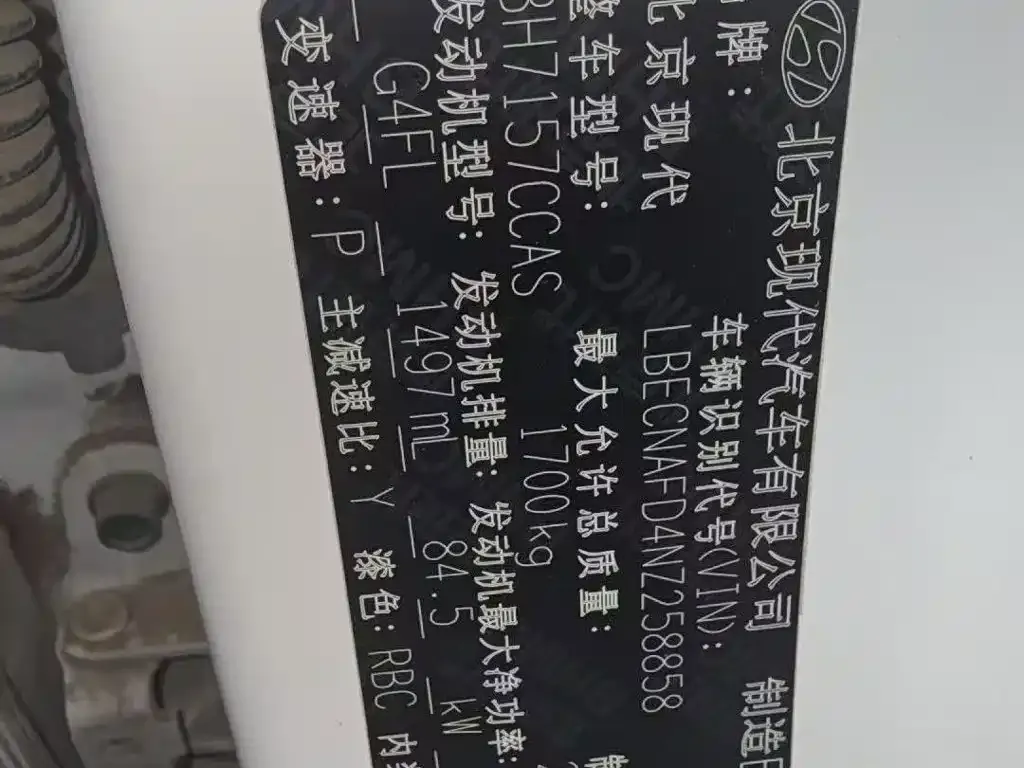 北京现代汽车有限公司 制造
牌: 车辆识别代号(VIN):
北京现代 LBECNAFD4NZ258858
整车型号: 最大允许总质量:
BH7157CCAS 1700kg
发动机型号: 发动机排量: 发动机最大净功率:
G4FL 1497mL 84.5 kW
变速器: P 主减速比: Y 漆色: RBC 内